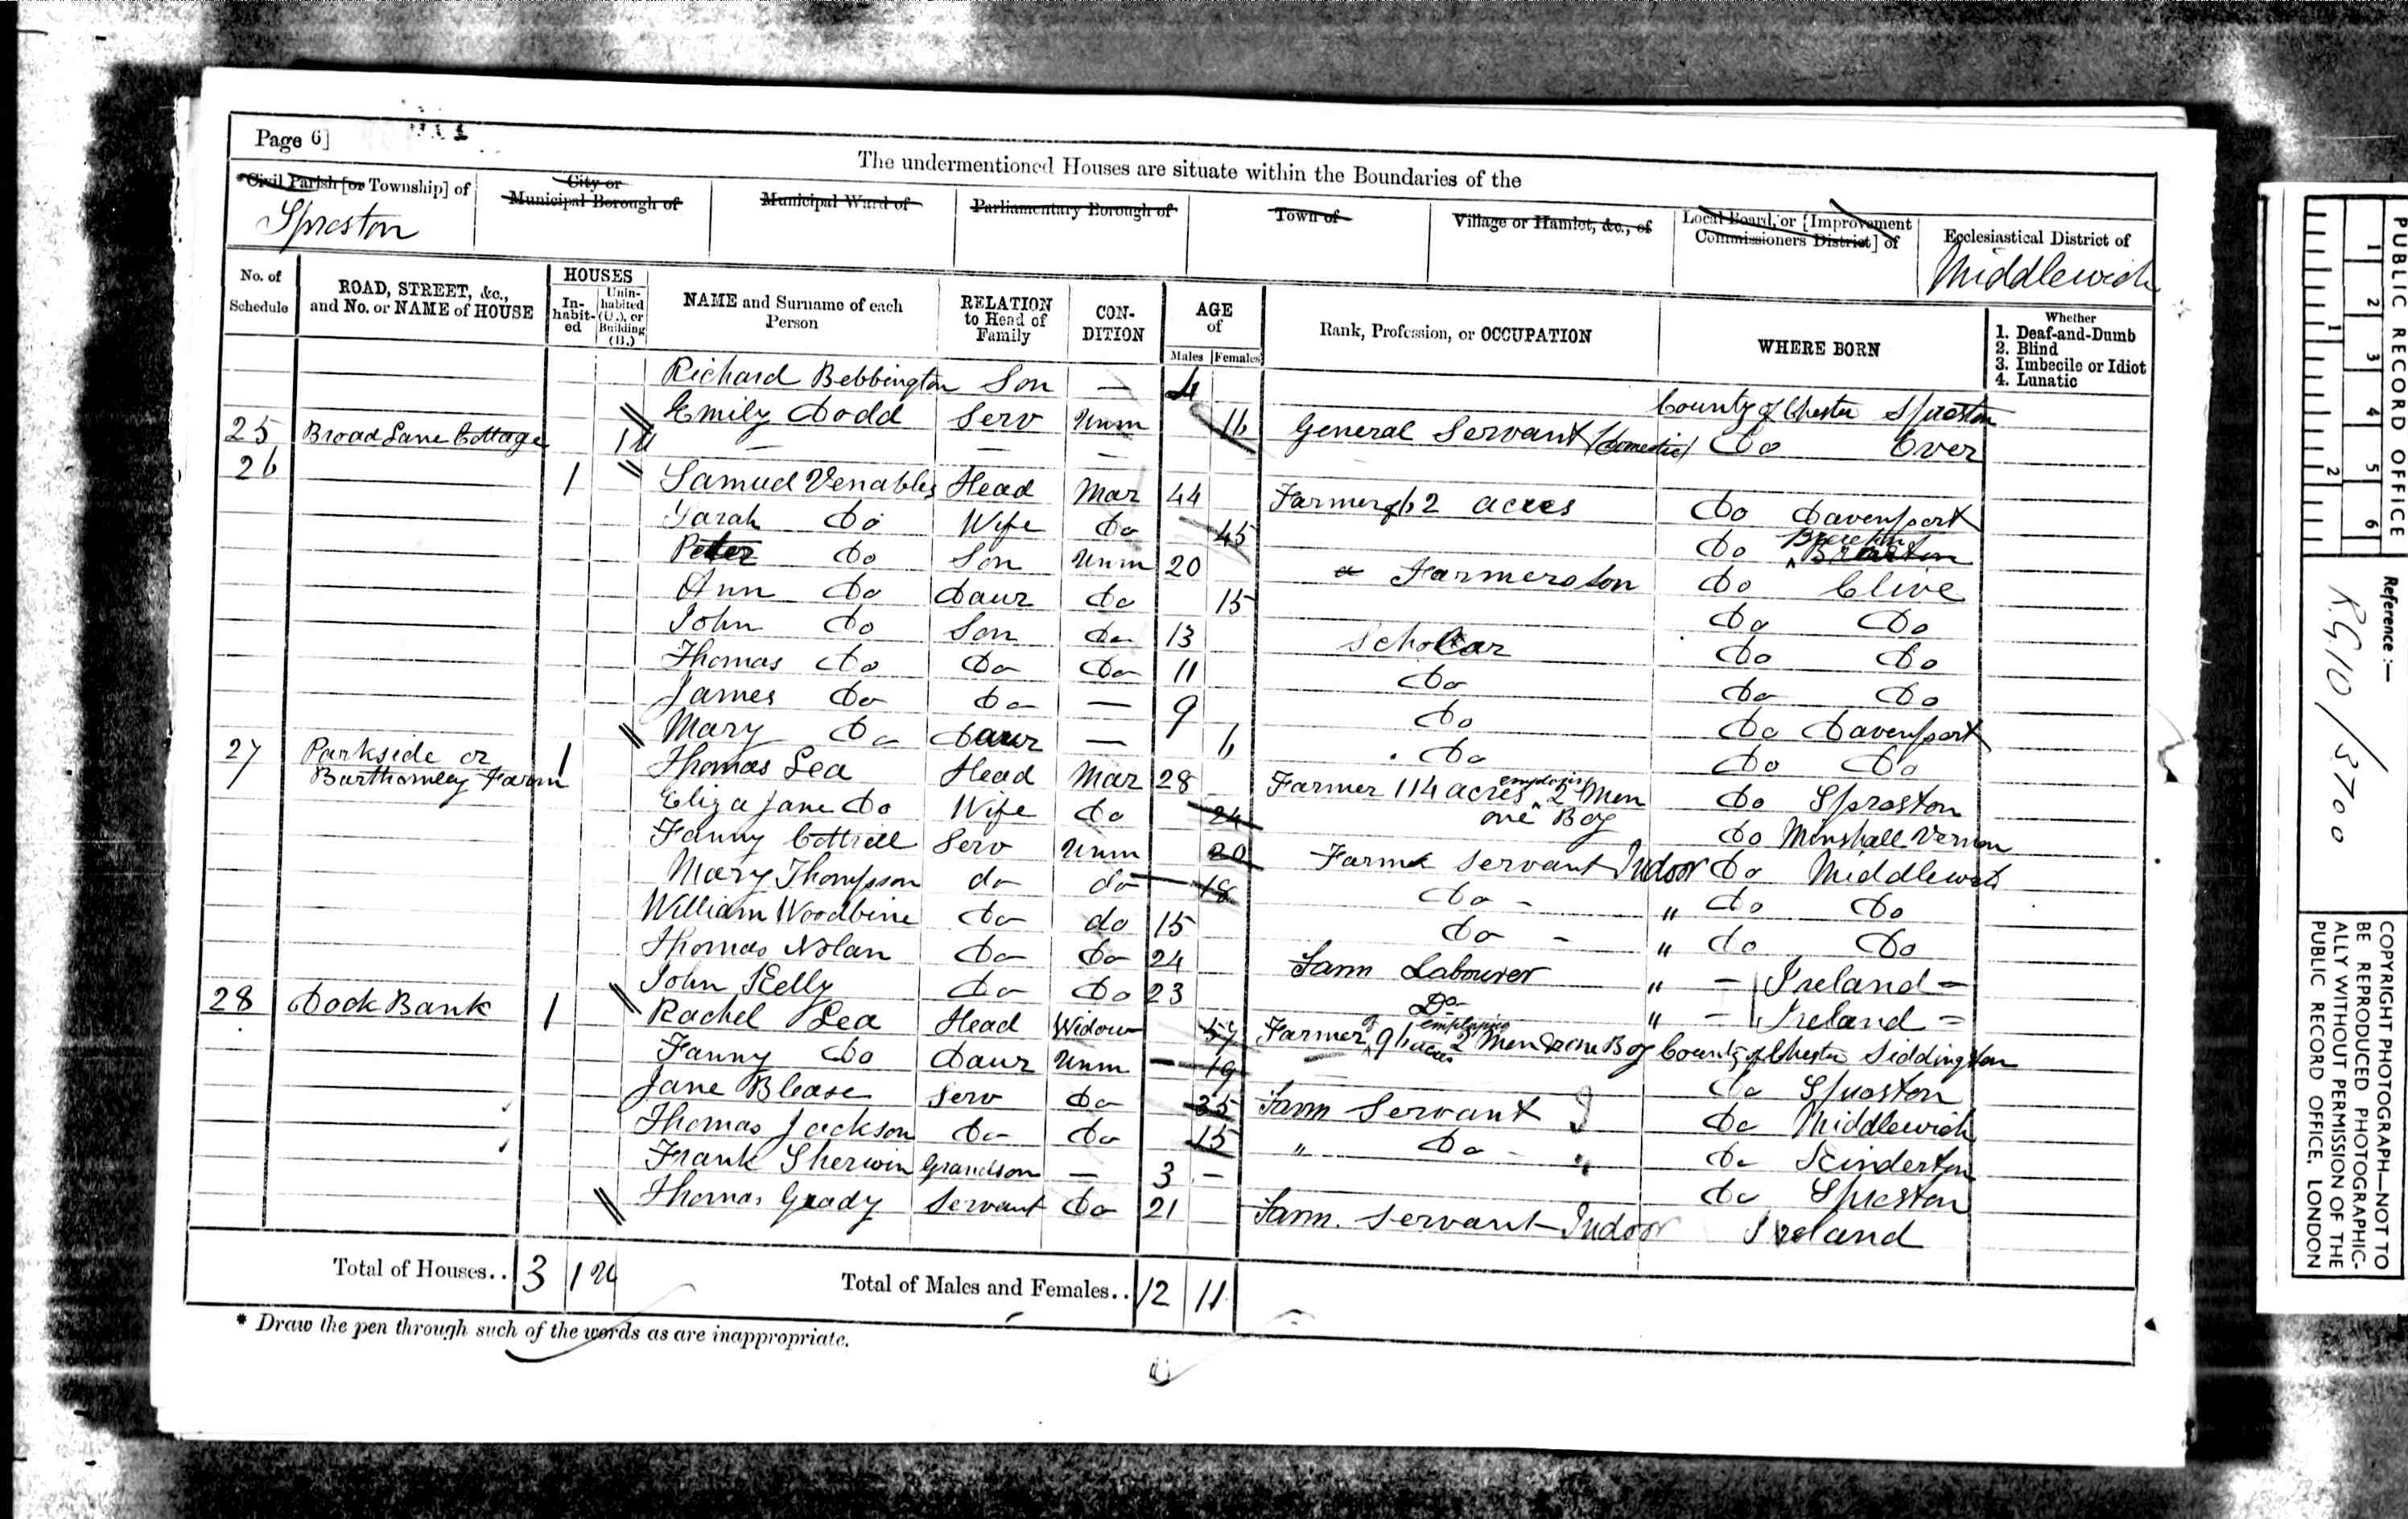 Page 6]
The undermentioned Houses are situate within the Boundaries of the
*Civil Parish [or Township] of
Spreston
City or
Municipal Borough of
Municipal Ward of
Parliamentary Borough of
Town of
Village or Hamlet, &c., of
Local Board, or [Improvement
Commissioners District] of
Ecclesiastical District of
Middlewich
No. of
Schedule
ROAD, STREET, &c.,
and No. or NAME of HOUSE
HOUSES
In-
habit-
ed
Unin-
habited
(U.), or
Building
(B.)
NAME and Surname of each
Person
RELATION
to Head of
Family
CON-
DITION
AGE
of
Males Females
Rank, Profession, or OCCUPATION
WHERE BORN
Whether
1. Deaf-and-Dumb
2. Blind
3. Imbecile or Idiot
4. Lunatic
Richard Bebbington Son — 4 County of Chester Sproston
Emily Dodd Serv Unm 16 General Servant (domestic) Do Over
25 Broad Lane Cottage 1 U — — —
26 1 Samuel Venables Head Mar 44 Farmer of 62 acres Do Davenport
Sarah Do Wife Do 45 Do
Peter Do Son Unm 20 Farmers Son Do Clive
Ann Do Daur Do 15 Do Do
John Do Son Do 13 Scholar Do Do
Thomas Do Do Do 11 Do Do Do
James Do Do — 9 Do Do Davenport
Mary Do Daur — 6 Do Do Do
27 Parkside or Barthomley Farm 1 Thomas Lea Head Mar 28 Farmer 114 acres employing 2 Men one Boy Do Sproston
Eliza Jane Do Wife Do 24 Do Minshall Vernon
Fanny Cottrell Serv Unm 20 Farm Servant Indoor Do Middlewich
Mary Thompson do do 18 Do - " Do Do
William Woodbine Do do 15 Do - " do Do
Thomas Nolan Do Do 24 Farm Labourer " - Ireland -
John Kelly Do Do 23 Do " - Ireland =
28 Dock Bank 1 Rachel Lea Head Widow 57 Farmer of 96 acres employing 2 Men & one Boy County of Chester Siddington
Fanny Do Daur Unm 19 Do Sproston
Jane Blease Serv Do 35 Farm Servant I Do Middlewich
Thomas Jackson Do Do 15 " Do - " Do Kinderton
Frank Sherwin Grandson — 3 - Do Sproston
Thomas Grady Servant Do 21 Farm. Servant Indoor Ireland
Total of Houses.. 3 1 U
Total of Males and Females.. 12 11
* Draw the pen through such of the words as are inappropriate.
PUBLIC RECORD OFFICE
1 2 3 4 5 6
1 2
Reference :—
RG 10 / 3700
COPYRIGHT PHOTOGRAPH—NOT TO
BE REPRODUCED PHOTOGRAPHIC-
ALLY WITHOUT PERMISSION OF THE
PUBLIC RECORD OFFICE, LONDON